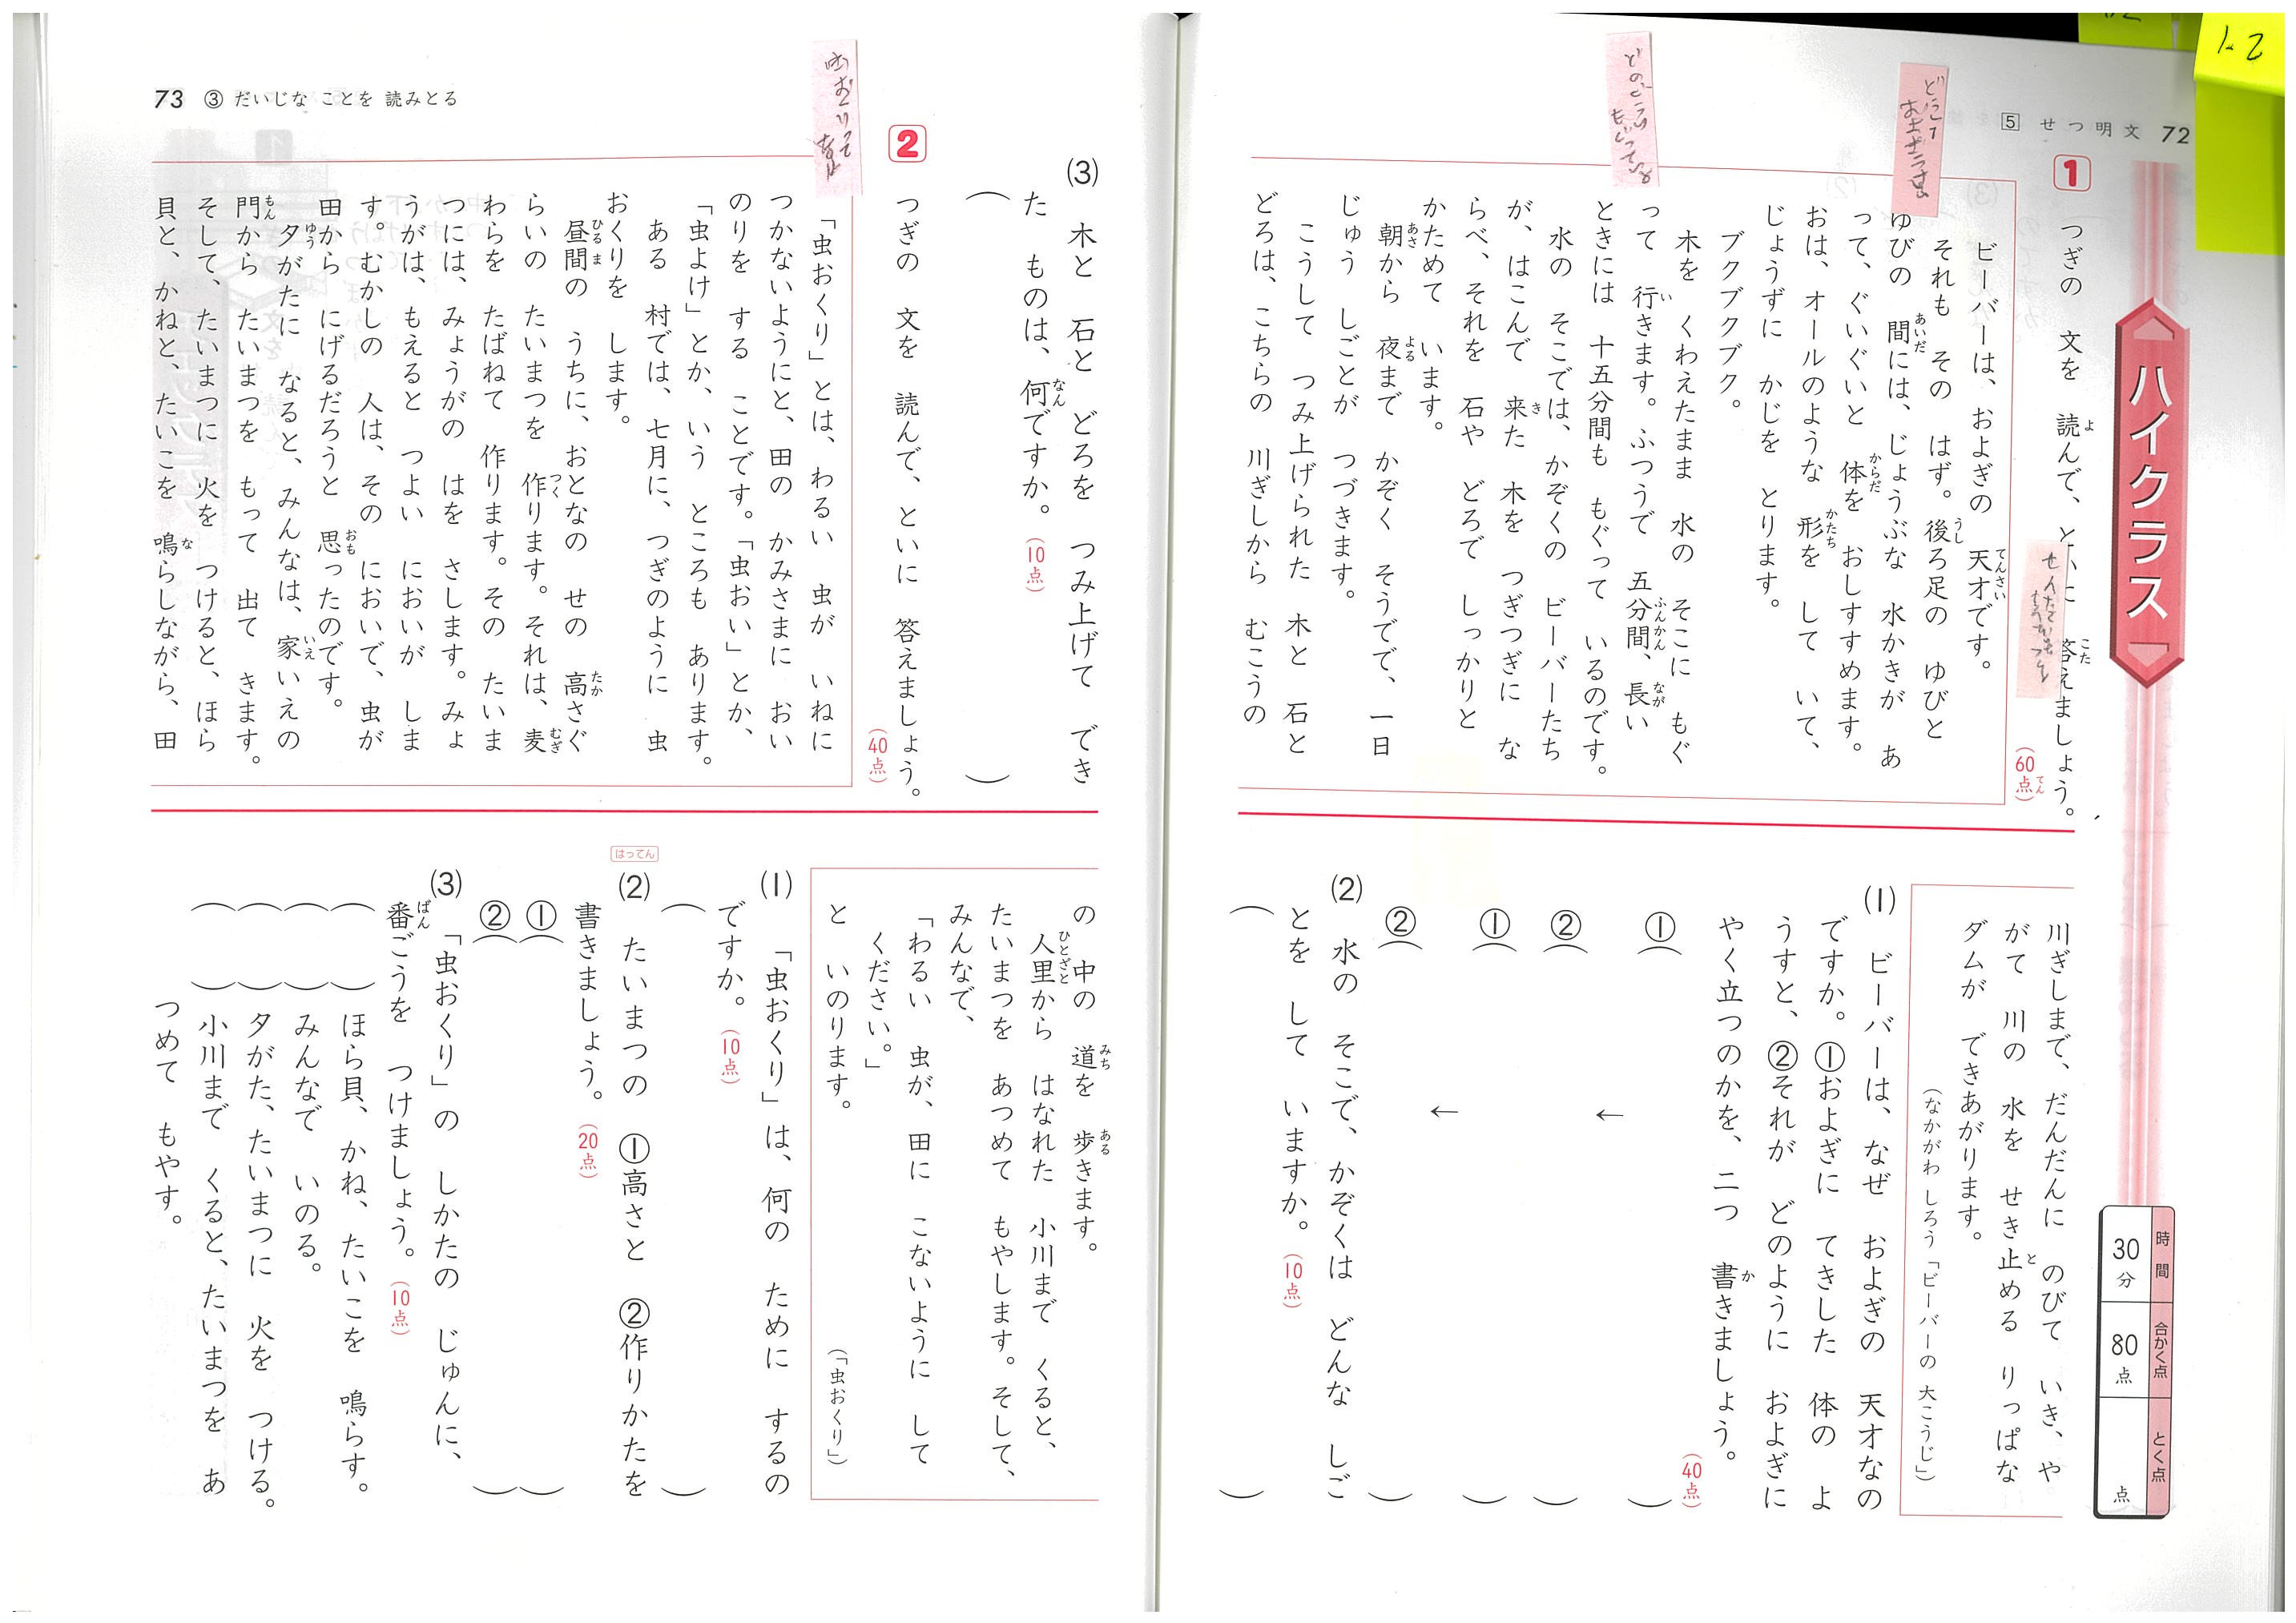 5 せつ明文 72
ハイクラス
時間 30分
合かく点 80点
とく点 点
1 つぎの 文を 読んで、といに 答えましょう。
(60点)
ビーバーは、およぎの 天才です。
それも その はず。後ろ足の ゆびと
ゆびの 間には、じょうぶな 水かきが あ
って、ぐいぐいと 体を おしすすめます。
おは、オールのような 形を して いて、
じょうずに かじを とります。
ブクブクブク。
木を くわえたまま 水の そこに もぐ
って 行きます。ふつうで 五分間、長い
ときには 十五分間も もぐって いるのです。
水の そこでは、かぞくの ビーバーたち
が、はこんで 来た 木を つぎつぎに な
らべ、それを 石や どろで しっかりと
かためて います。
朝から 夜まで かぞく そうでで、一日
じゅう しごとが つづきます。
こうして つみ上げられた 木と 石と
どろは、こちらの 川ぎしから むこうの
川ぎしまで、だんだんに のびて いき、や
がて 川の 水を せき止める りっぱな
ダムが できあがります。
(なかがわ しろう「ビーバーの 大こうじ」)
(1) ビーバーは、なぜ およぎの 天才なの
ですか。①およぎに てきした 体の よ
うすと、②それが どのように およぎに
やく立つのかを、二つ 書きましょう。
(40点)
①( )
↓
②( )
①( )
↓
②( )
(2) 水の そこで、かぞくは どんな しご
とを して いますか。(10点)
( )
(3) 木と 石と どろを つみ上げて でき
た ものは、何ですか。(10点)
( )
2 つぎの 文を 読んで、といに 答えましょう。
(40点)
「虫おくり」とは、わるい 虫が いねに
つかないようにと、田の かみさまに おい
のりを する ことです。「虫おい」とか、
「虫よけ」とか、いう ところも あります。
ある 村では、七月に、つぎのように 虫
おくりを します。
昼間の うちに、おとなの せの 高さぐ
らいの たいまつを 作ります。それは、麦
わらを たばねて 作ります。その たいま
つには、みょうがの はを さします。みょ
うがは、もえると つよい においが しま
す。むかしの 人は、その においで、虫が
田から にげるだろうと 思ったのです。
夕がたに なると、みんなは、家いえの
門から たいまつを もって 出て きます。
そして、たいまつに 火を つけると、ほら
貝と、かねと、たいこを 鳴らしながら、田
の 中の 道を 歩きます。
人里から はなれた 小川まで くると、
たいまつを あつめて もやします。そして、
みんなで、
「わるい 虫が、田に こないように して
ください。」
と いのります。
(「虫おくり」)
(1) 「虫おくり」は、何の ために するの
ですか。(10点)
( )
はってん
(2) たいまつの ①高さと ②作りかたを
書きましょう。(20点)
①( )
②( )
(3) 「虫おくり」の しかたの じゅんに、
番ごうを つけましょう。(10点)
( ) ほら貝、かね、たいこを 鳴らす。
( ) みんなで いのる。
( ) 夕がた、たいまつに 火を つける。
( ) 小川まで くると、たいまつを あ
つめて もやす。
73 ③ だいじな ことを 読みとる